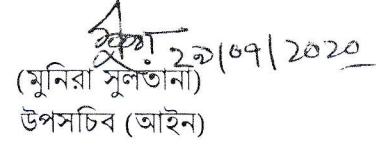 ২৯/০৭/২০২০
(মুনিরা সুলতানা)
উপসচিব (আইন)